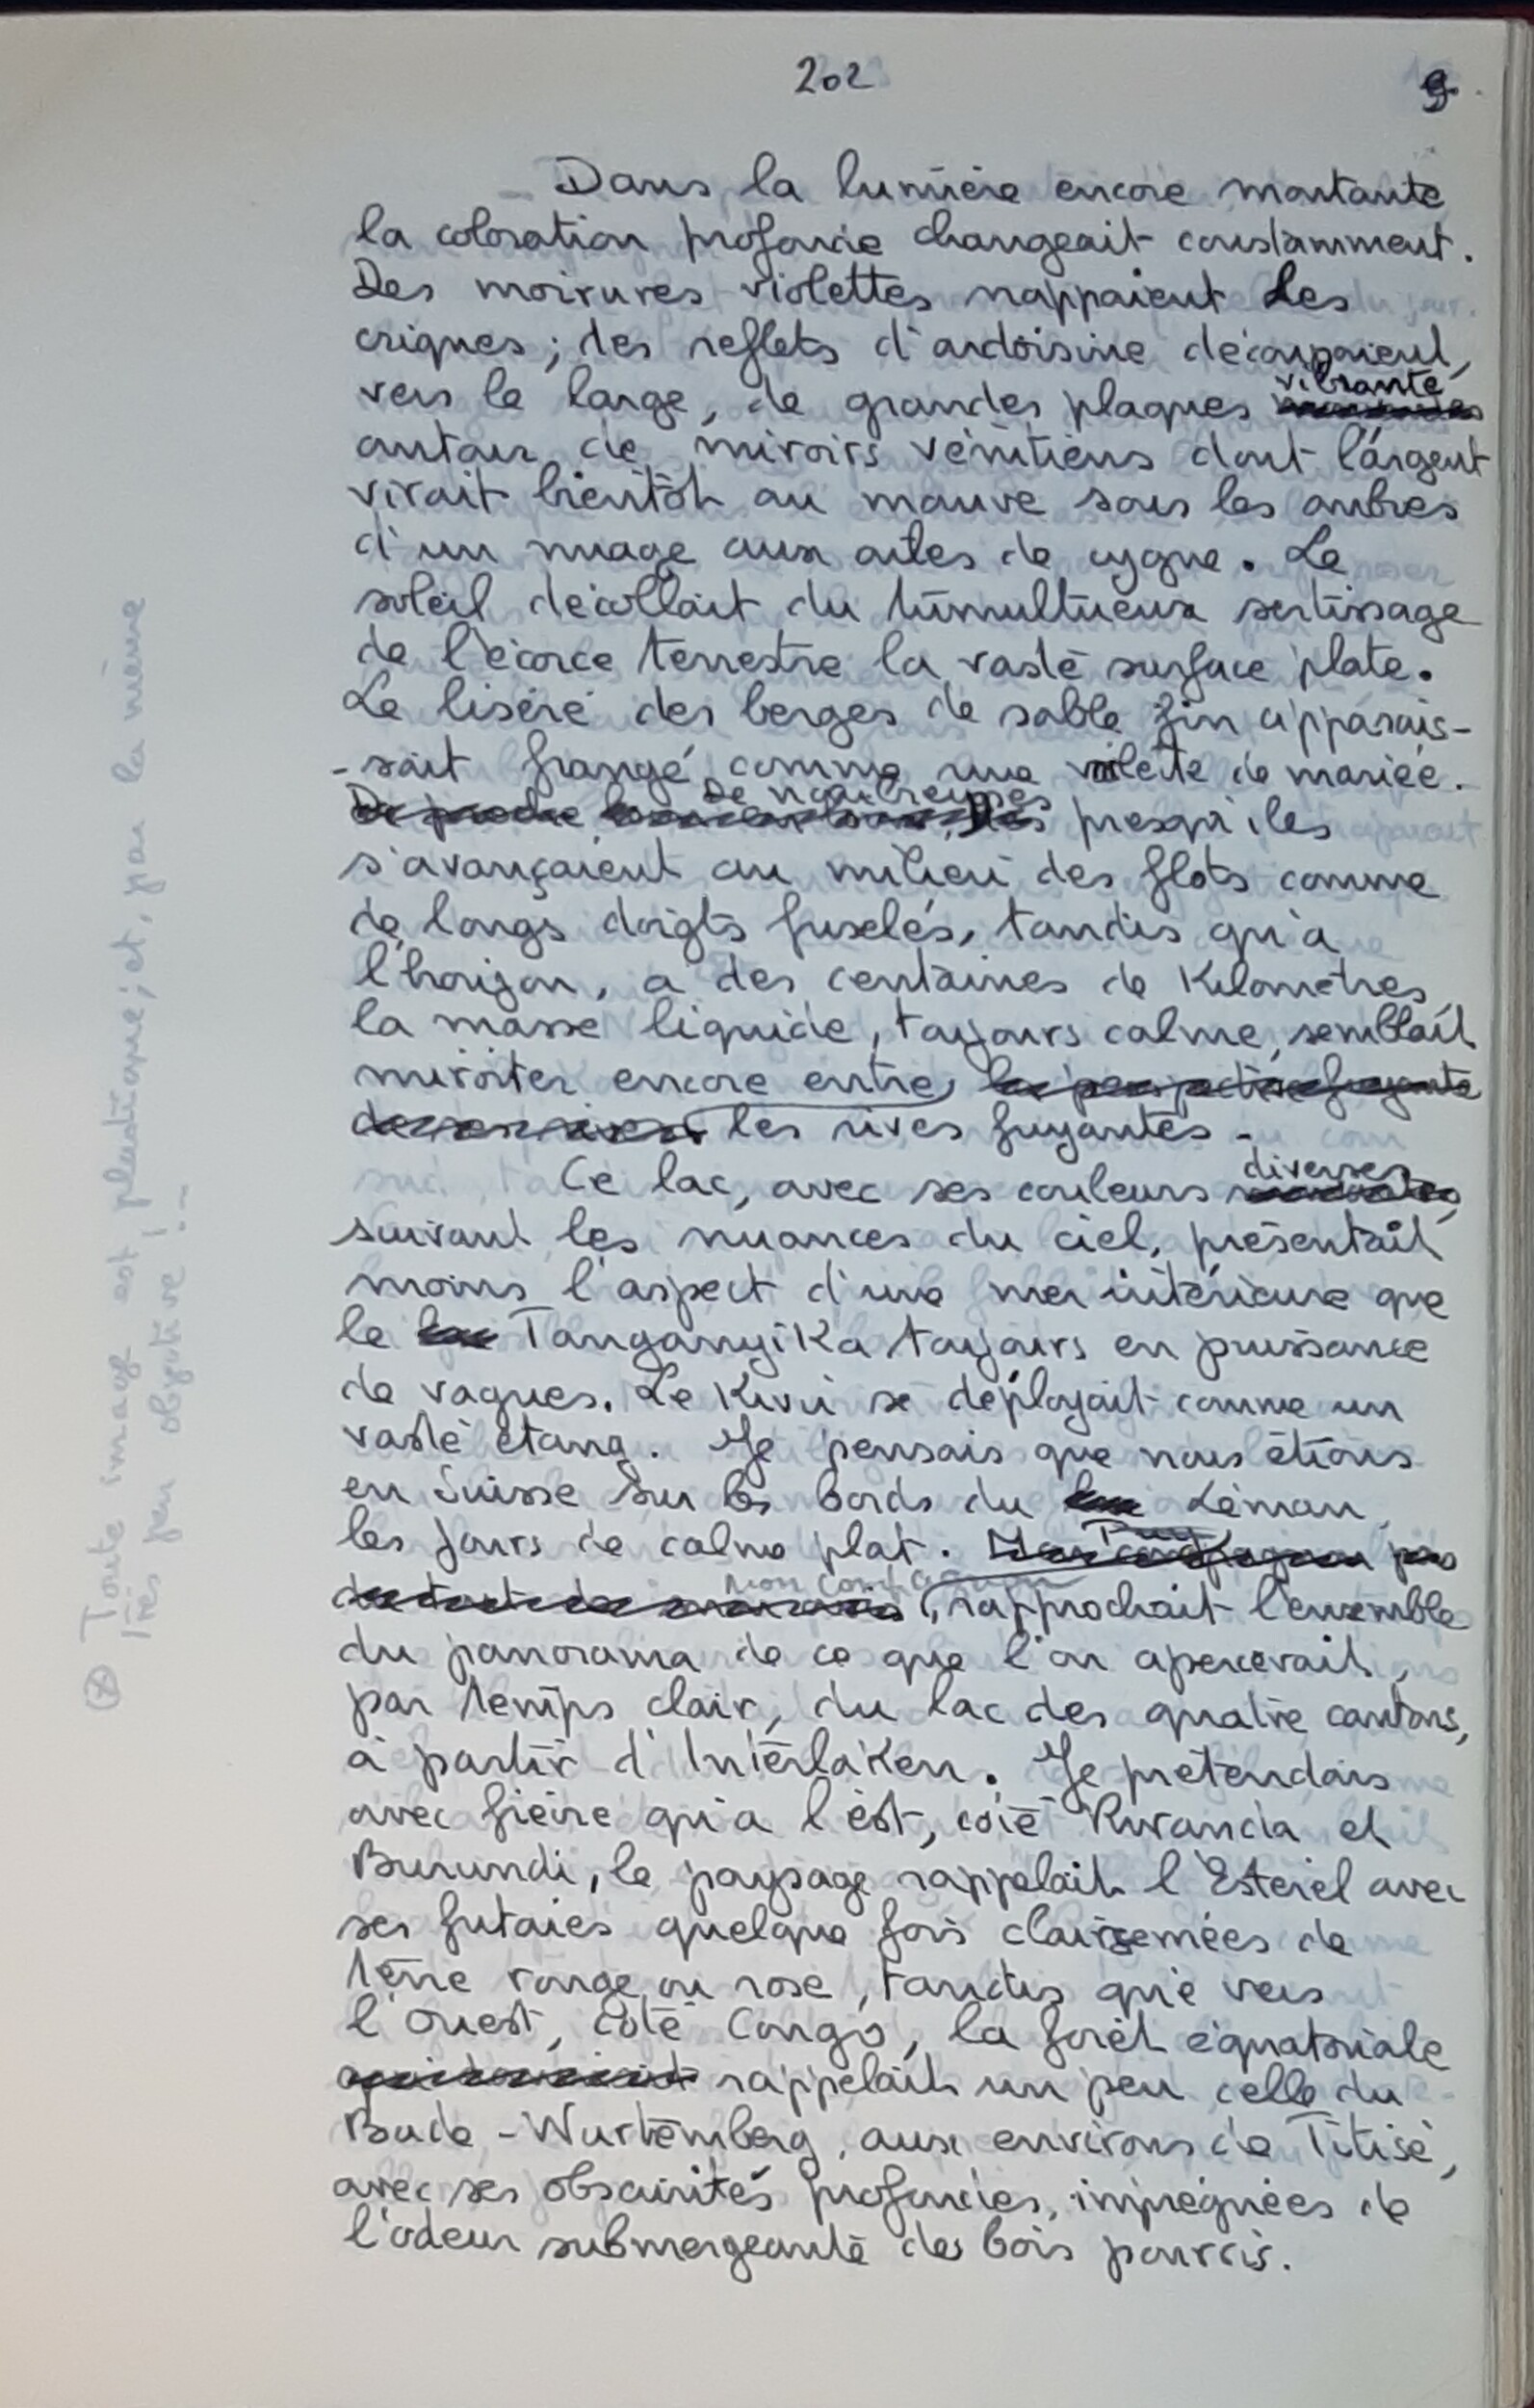 202
9.
Dans la lumière encore montante
la coloration profonde changeait constamment.
Des moirures violettes nappaient les
criques ; des reflets d'ardoisine découpaient,
vers le large, de grandes plaques vibrante
autour de miroirs vénitiens dont l'argent
virait bientôt au mauve sous les ombres
d'un nuage aux ailes de cygne. Le
soleil décollait du tumultueux sertissage
de l'écorce terrestre la vaste surface plate.
Le liséré des berges de sable fin apparais-
-sait frangé comme une voilette de mariée.
De nombreuses presqu'iles
s'avançaient au milieu des flots comme
de longs doigts fuselés, tandis qu'à
l'horizon, à des centaines de Kilomètres,
la masse liquide, toujours calme, semblait
miroiter encore entre
les rives fuyantes.
Ce lac, avec ses couleurs diverses
suivant les nuances du ciel, présentait
moins l'aspect d'une mer intérieure que
le Tanganyika toujours en puissance
de vagues. Le Kivu se déployait comme un
vaste étang. Je pensais que nous étions
en Suisse sur les bords du Léman,
les jours de calme plat.
mon compagnon rapprochait l'ensemble
du panorama de ce que l'on apercevait,
par temps clair, du lac des quatre cantons,
à partir d'Interlaken. Je prétendais
avec fièvre qu'à l'est, côté Rwanda et
Burundi, le paysage rappelait l'Esterel avec
ses futaies quelque fois clairsemées de
terre rouge ou rose, tandis que vers
l'Ouest, côté Congo, la forêt équatoriale
rappelait un peu celle du
Bade-Wurtemberg, aux environs de Titisé,
avec ses obscurités profondes, imprégnées de
l'odeur submergeante des bois pourris.
Toute image est plastique ; et, par la même
très peu objective !